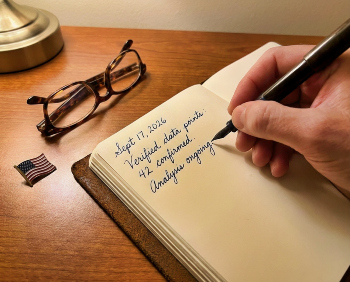 Sept 17, 2026
Verified data points:
42 confirmed.
Analysis ongoing